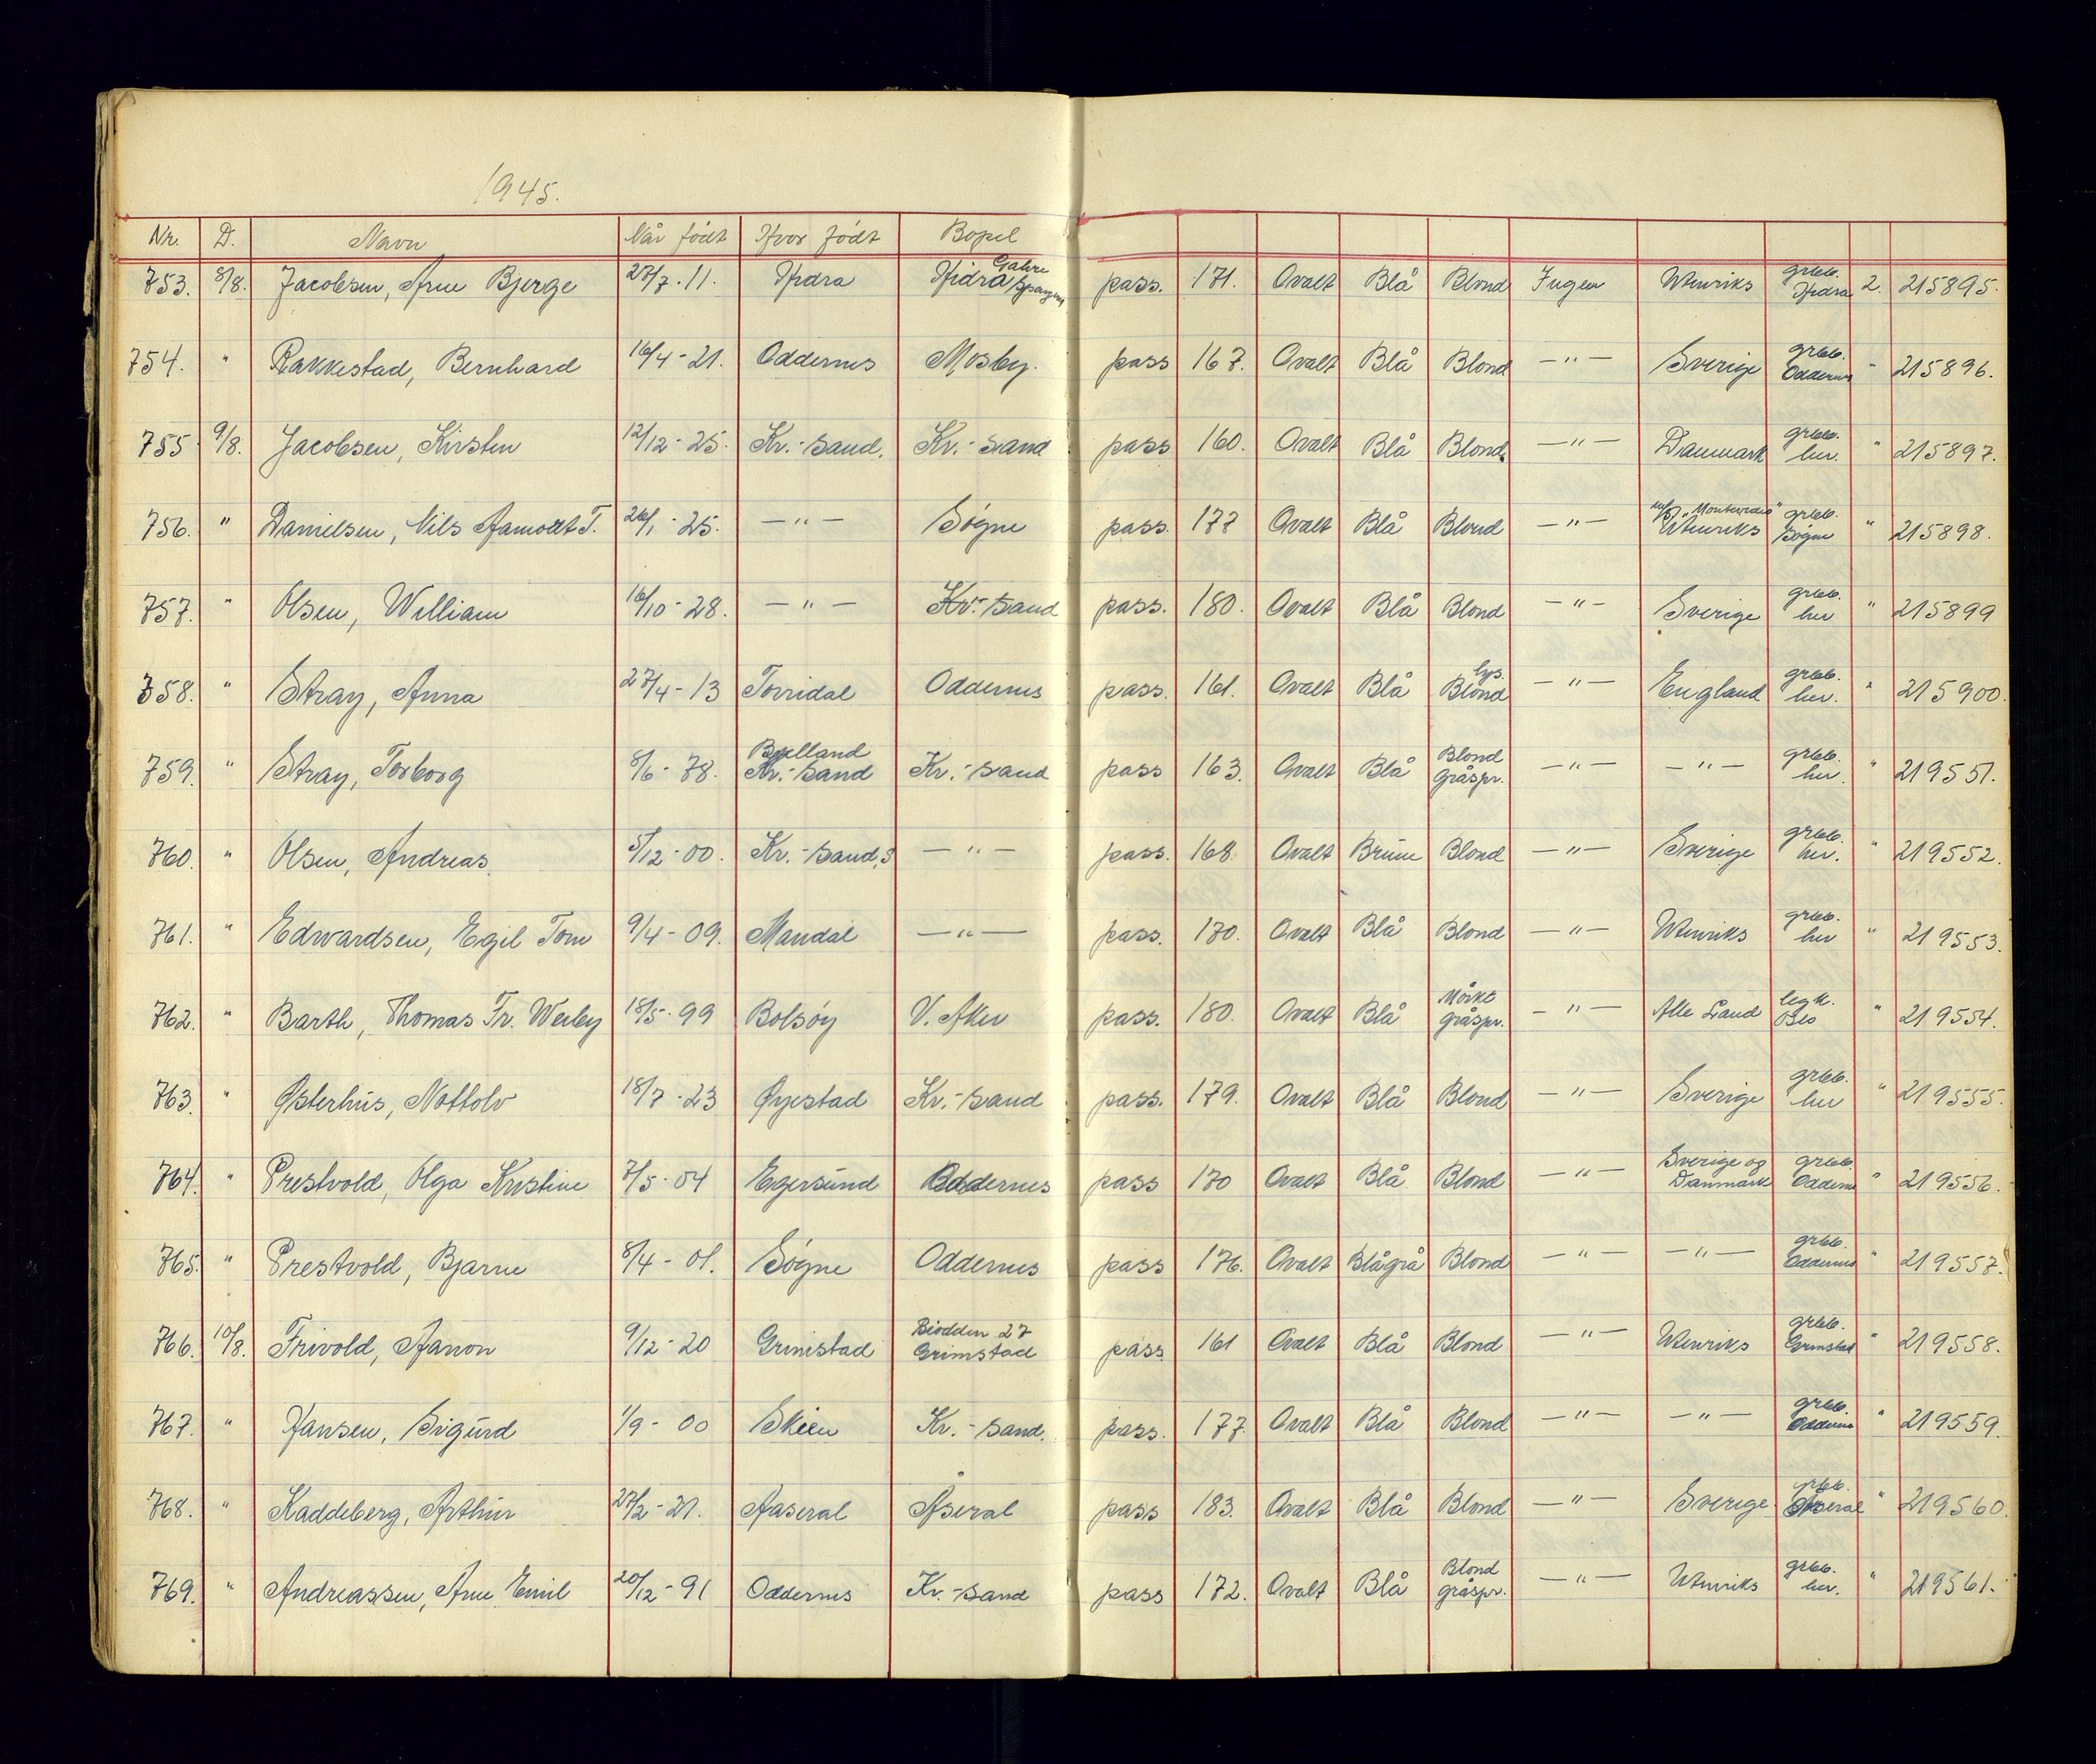 1945.
Nr. D. Navn Når født Hvor født Bopel
753. 8/8. Jacobsen, Arne Bjerge 27/7-11. Hidra Hidra pass. 171. Ovalt Blå Blond Ingen Utenriks grbb. Hidra 2. 215895.
754. " Rakkestad, Bernhard 16/4-21. Oddernes Mosby. pass 167. Ovalt Blå Blond —"— Sverige grbb. Oddernes " 215896.
755 9/8. Jacobsen, Kirsten 12/12-25. Kr.-sand. Kr.-sand pass 160. Ovalt Blå Blond. —"— Danmark grbb. her. " 215897.
756. " Danielsen, Nils Aamodt T. 26/1-25. —"— Søgne pass. 177 Ovalt Blå Blond —"— M/S "Montevideo" Utenriks grbb. Søgne " 215898.
757. " Olsen, William 16/10-28. —"— Kr.-sand pass. 180. Ovalt Blå Blond —"— Sverige grbb. her " 215899
758. " Stray, Anna 27/4-13 Torridal Oddernes pass. 161. Ovalt Blå lys. Blond —"— England grbb. her. " 215900.
759. " Stray, Torborg 8/6-78. Bjelland Kr.-sand Kr.-sand pass 163. Ovalt Blå Blond gråspr. —"— —"— grbb. her. " 219551.
760. " Olsen, Andreas. 5/12-00. Kr.-sand.S —"— pass. 168. Ovalt Brune Blond —"— Sverige grbb. her. " 219552.
761. " Edwardsen, Egil Tom 9/4-09. Mandal —"— pass. 170. Ovalt Blå Blond —"— Utenriks grbb. her " 219553.
762. " Barth, Thomas Fr. Werby 18/5-99 Bolsøy V. Aker pass. 180. Ovalt Blå Mörkt gråspr. —"— Alle Land leg.k. Oslo " 219554.
763. " Østerhus, Nottolv 18/7-23 Øyestad Kr.-sand pass. 179. Ovalt Blå Blond —"— Sverige grbb. her " 219555.
764. " Prestvold, Olga Kristine 7/5-04 Egersund Oddernes pass 170 Ovalt Blå Blond —"— Sverige og Danmark grbb. Oddernes " 219556.
765. " Prestvold, Bjarne 8/4-01. Søgne Oddernes pass 176. Ovalt Blågrå Blond —"— —"— grbb. Oddernes " 219557.
766. 10/8. Frivold, Aanon 9/12-20 Grimstad Biodden 27 Grimstad pass 161 Ovalt Blå Blond —"— Utenriks grbb. Grimstad " 219558.
767. " Hansen, Sigurd 1/9-00 Skien Kr.-sand. pass. 177. Ovalt Blå Blond —"— —"— grbb. Oddernes " 219559.
768. " Kaddeberg, Arthur 27/2-21. Aaseral Åseral pass 183. Ovalt Blå Blond —"— Sverige grbb. Åseral " 219560.
769. " Andreassen, Arne Emil 20/12-91 Oddernes Kr.-sand pass 172. Ovalt Blå Blond gråspr. —"— Utenriks grbb. her. " 219561.